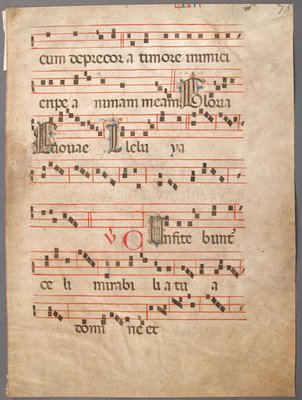 LXXVI 76
cum deprecor a timore inimici
eripe a nimam meam. Gloria
Enouae Llelu ya
V Onfite bunt
ce li mirabi li a tu a
domi ne et